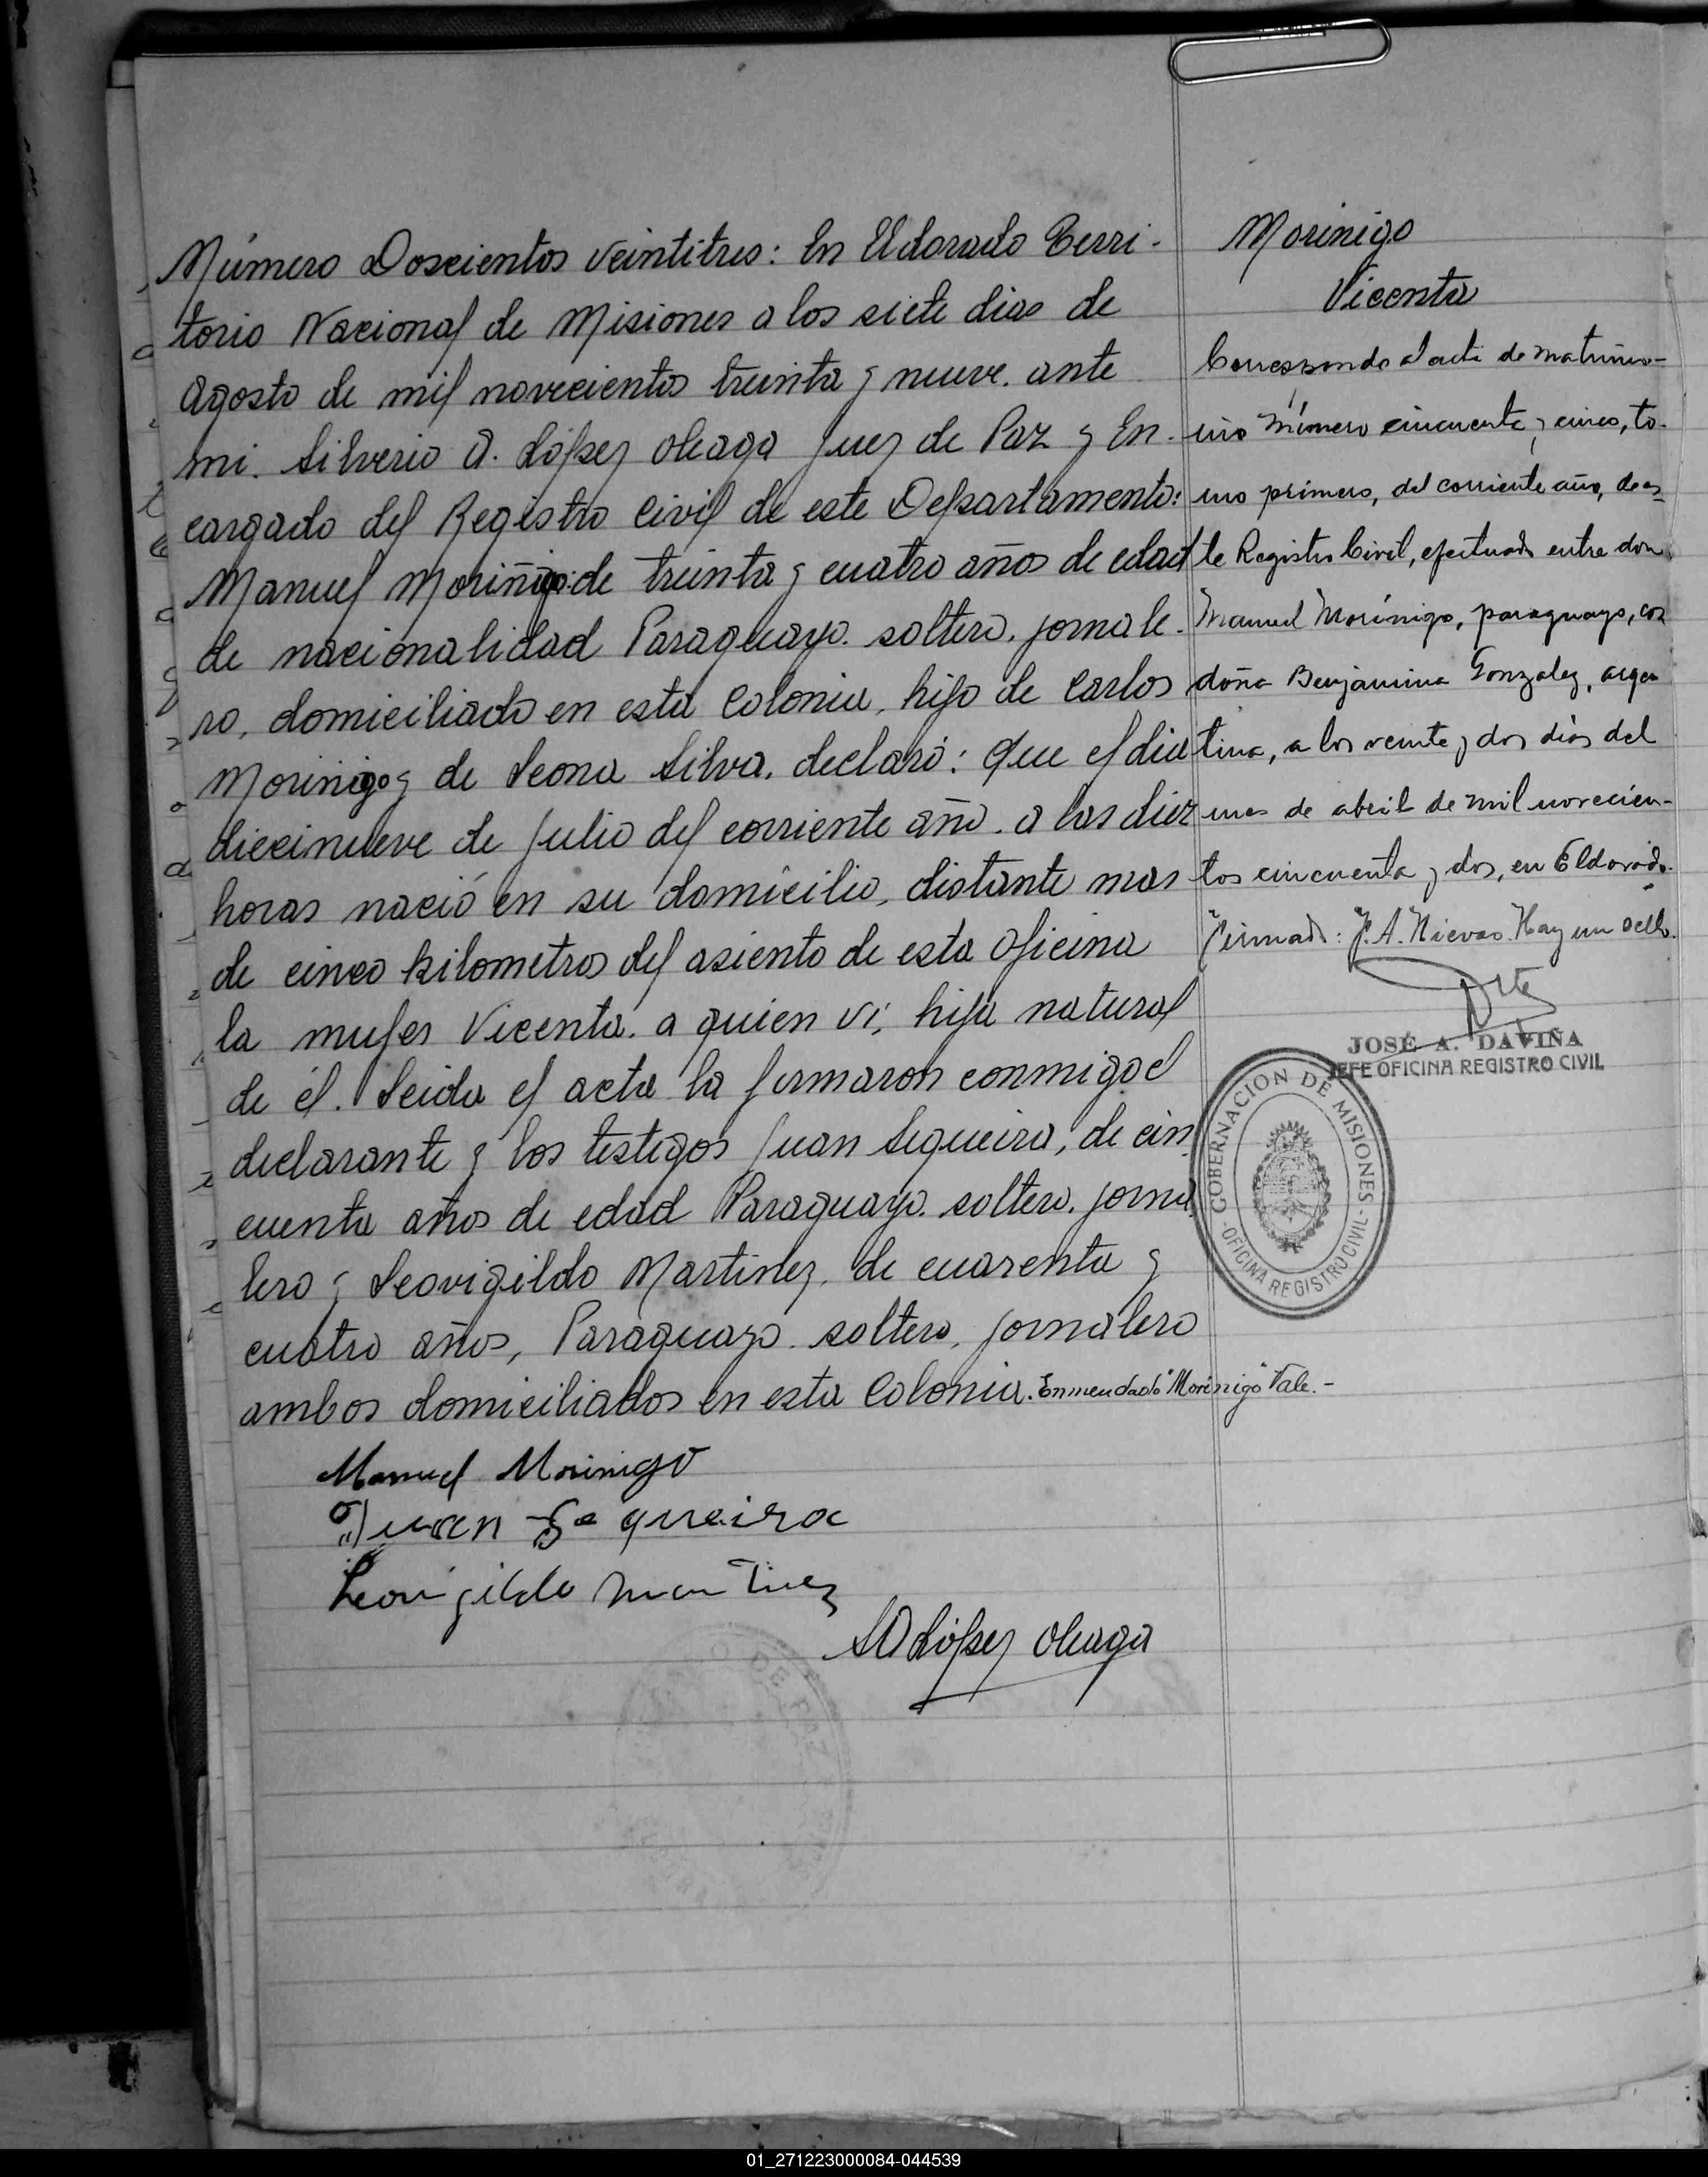 Número Doscientos veintitres: En Eldorado Terri-
torio Nacional de Misiones a los siete dias de
Agosto de mil novecientos treinta y nueve. ante
mi. Silverio A. López Oleaga Juez de Paz y En-
cargado del Registro Civil de este Departamento:
Manuel Morinigo: de treinta y cuatro años de edad
de nacionalidad Paraguayo. soltero. jornale-
ro, domiciliado en esta Colonia, hijo de Carlos
Morinigo y de Leona Silva. declaró: Que el dia
diecinueve de Julio del corriente año. a las diez
horas nació en su domicilio, distante mas
de cinco kilometros del asiento de esta Oficina
la mujer Vicenta. a quien vi, hija natural
de él. Leida el acta la firmaron conmigo el
declarante y los testigos Juan Sequeira, de cin
cuenta años de edad Paraguayo. soltero. jorna
lero y Leovigildo Martinez, de cuarenta y
cuatro años, Paraguayo. soltero, jornalero
ambos domiciliados en esta Colonia. Enmendado "Morinigo" Vale.-
Manuel Morinigo
Juan Sequeira
Leovigildo Martinez
SA López Oleaga
Morinigo
Vicenta
Corresponde al acta de matrimo-
nio número cincuenta y cinco, to-
mo primero, del corriente año, de es-
te Registro Civil, efectuado entre don
Manuel Morinigo, paraguayo, con
doña Benjamina Gonzalez, argen
tina, a los veinte y dos dias del
mes de abril de mil novecien-
tos cincuenta y dos, en Eldorado.
Firmado: J. A. Nievas. Hay un sello.
JOSÉ A. DAVIÑA
JEFE OFICINA REGISTRO CIVIL
GOBERNACION DE MISIONES
- OFICINA REGISTRO CIVIL -
O DE PAZ
01_271223000084-044539